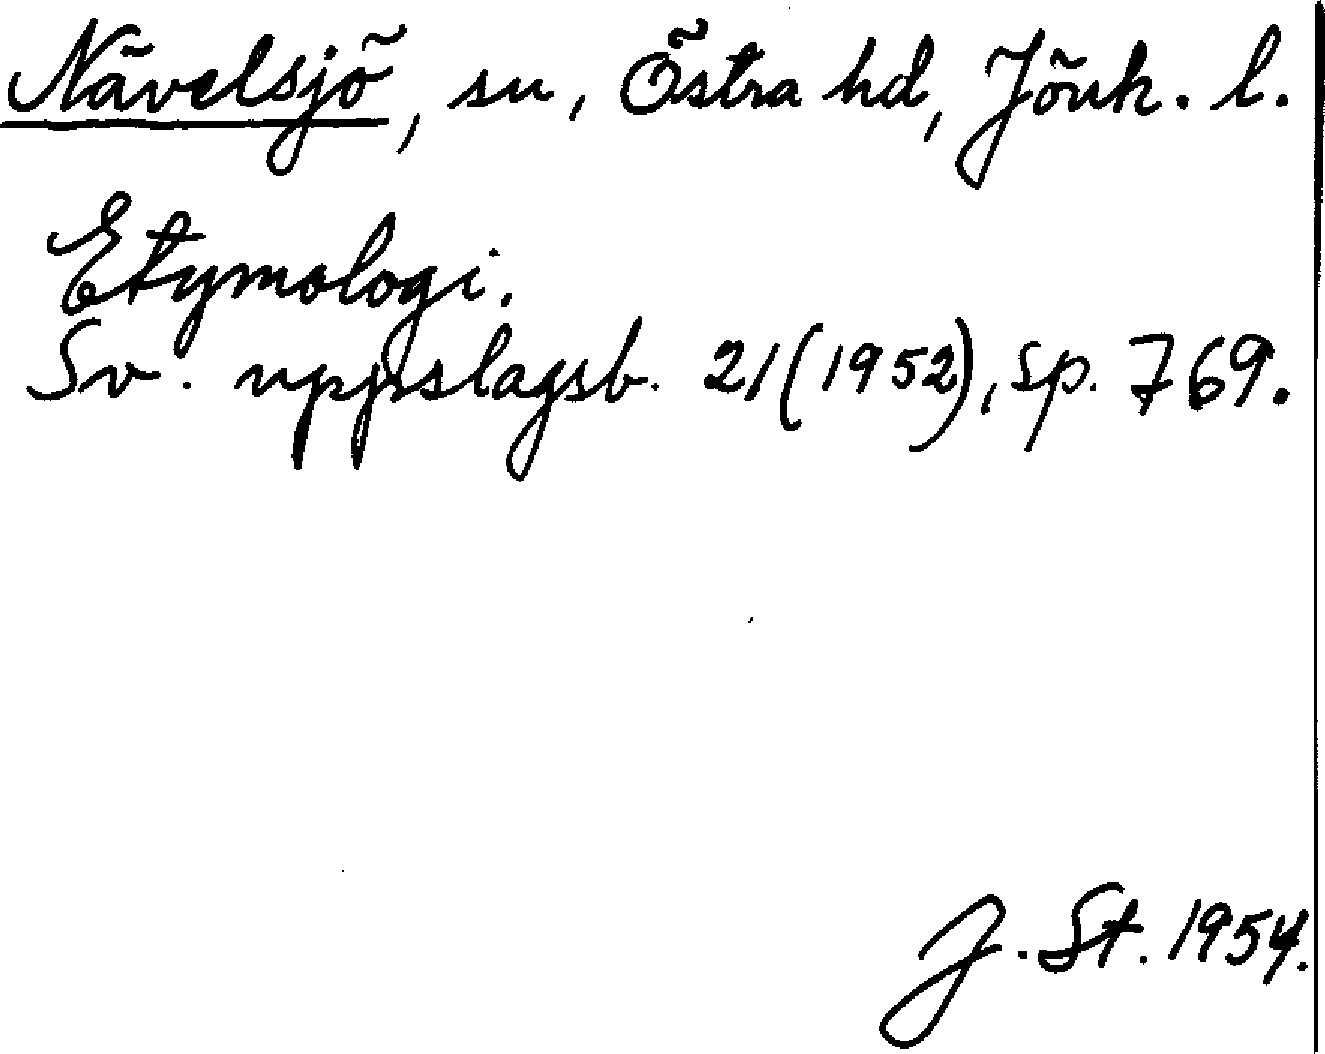 Nävelsjö, sn, Östra hd, Jönk. l.
Etymologi.
Sv. uppslagsb. 21(1952), sp. 769.
J. St. 1954.